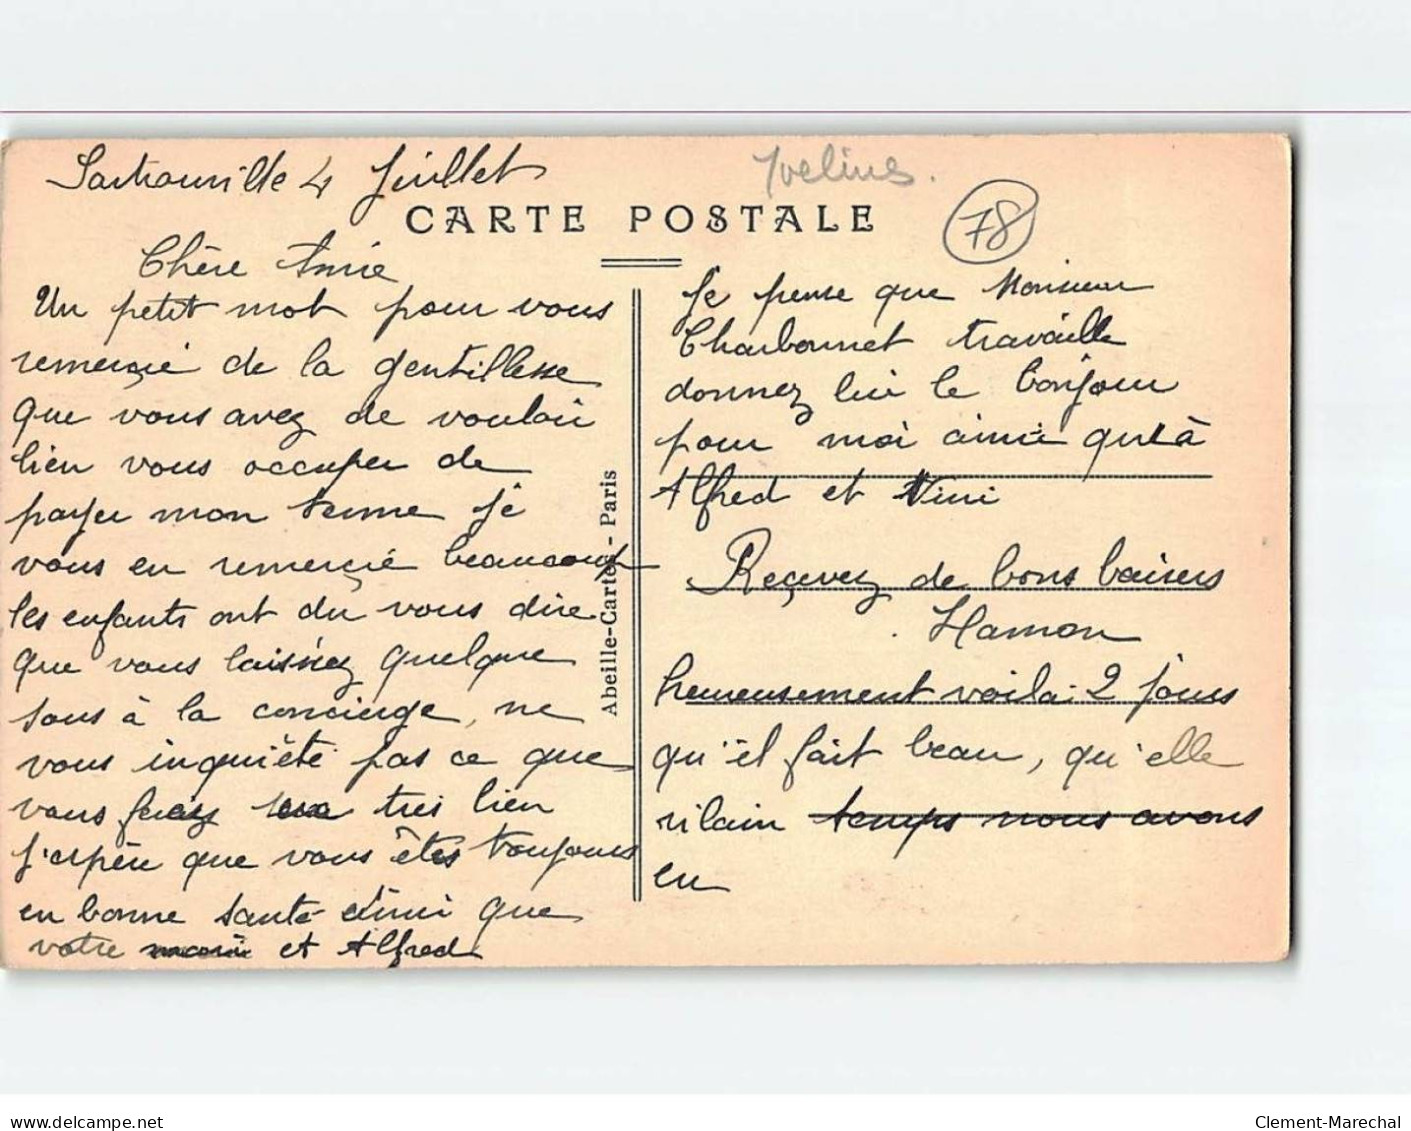 Sartrouville 4 Juillet
Yvelines.
78
CARTE POSTALE
Chère Amie
Un petit mot pour vous
remerçié de la gentillesse
que vous avez de vouloir
bien vous occuper de
payer mon terme je
vous en remerçie beaucoup
les enfants ont du vous dire
que vous laissiez quelque
sous à la concierge, ne
vous inquiète pas ce que
vous ferez sera très bien
j'espère que vous êtes toujours
en bonne santé ainsi que
votre mari et Alfred
Abeille-Cartes - Paris
Je pense que Monsieur
Charbonnet travaille
donnez lui le bonjour
pour moi ainsi qu'à
Alfred et Nini
Reçevez de bons baisers
Hamon
heureusement voila 2 jours
qu'il fait beau, qu'elle
vilain temps nous avons
eu
delcampe.net
Clement-Marechal